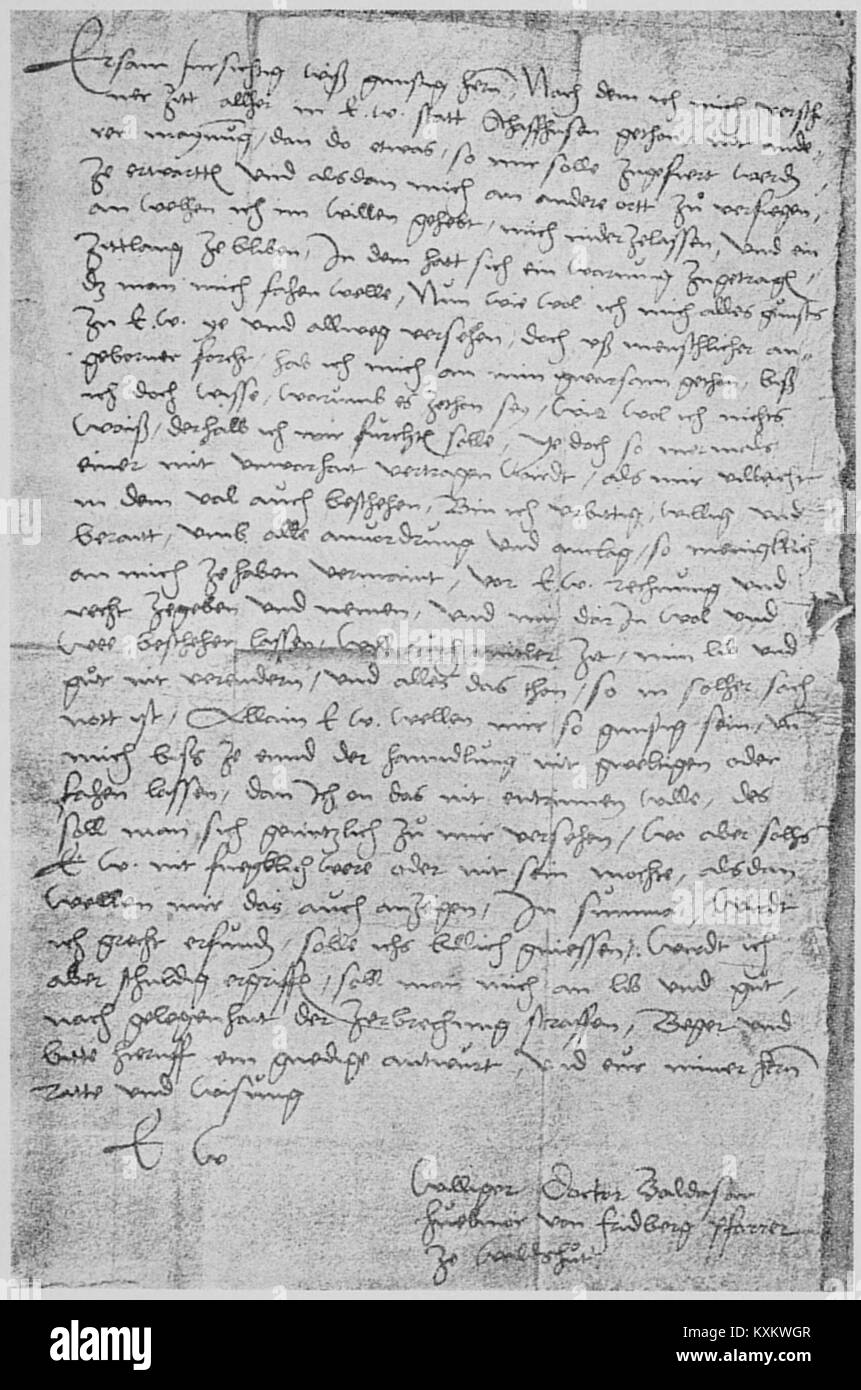 Ersam fursichtig wiß gunstig hern, Nach dem ich mich versch-
ner zitt allher in E. W. statt Schaffhusen gethon mit ande-
rer maynung, dan do etwas, so mir solle zugefiert werden,
ze erwartten und alsdan mich an andere ortt zů verfiegen,
an welhen ich im willen gehebt, mich nider zelassen, und ein
zittlang ze bliben, In dem hatt sich ein warnung zugetragen,
dz man mich fahen welle, Nun wie wol ich mich alles gunsts
zu E. W. ye und allweg versehen, doch uß menschlicher an-
geborner forcht, hab ich mich an min gwarsam gethon, biß
ich doch wisse, warumb es zethon sey, wie wol ich nichts
waiß, derhalb ich mir furchten solle, ye doch so mermals
einer mit unwarhait vertragen wirdt, als mir villeicht
in dem val auch beschehen, Bin ich urbittig, willig und
berait, umb alle anvordrung und anclag, so menigklich
an mich ze haben vermaint, vor E. W. rechnung und
recht zegeben und nemen, und mir dar In wol und
wee beschehen lassen, Will mich mitler zit, min lib und
gůt nit verendern, und alles das thon, so in solher sach
nott ist, Allain E W. wellen mir so gunstig sein, un
mich biss ze ennd der handlung nit gweltigen oder
fahen lassen, dan Ich on das nit entrinnen wille, des
soll man sich gentzlich zů mir versehen, Wo aber solhs
E W. nit fuegklich were oder nit sein mochte, alsdan
wellen mir das auch anzegen, In summa, wurdt
ich grecht erfunden, solle ichs billich gniessen, Wurdt ich
aber schuldig ergriffen, soll man mich an lib und gůt,
nach gelegenhait der zerbrechung straffen, Beger und
bitte hieruff ein gnedige antwurt, und eur miner hern
ratte und wisung
E W
Williger Doctor Baldasar
Huebmor von fridberg pfarrer
ze waldshůt
alamy
Image ID: KXKWGR
www.alamy.com